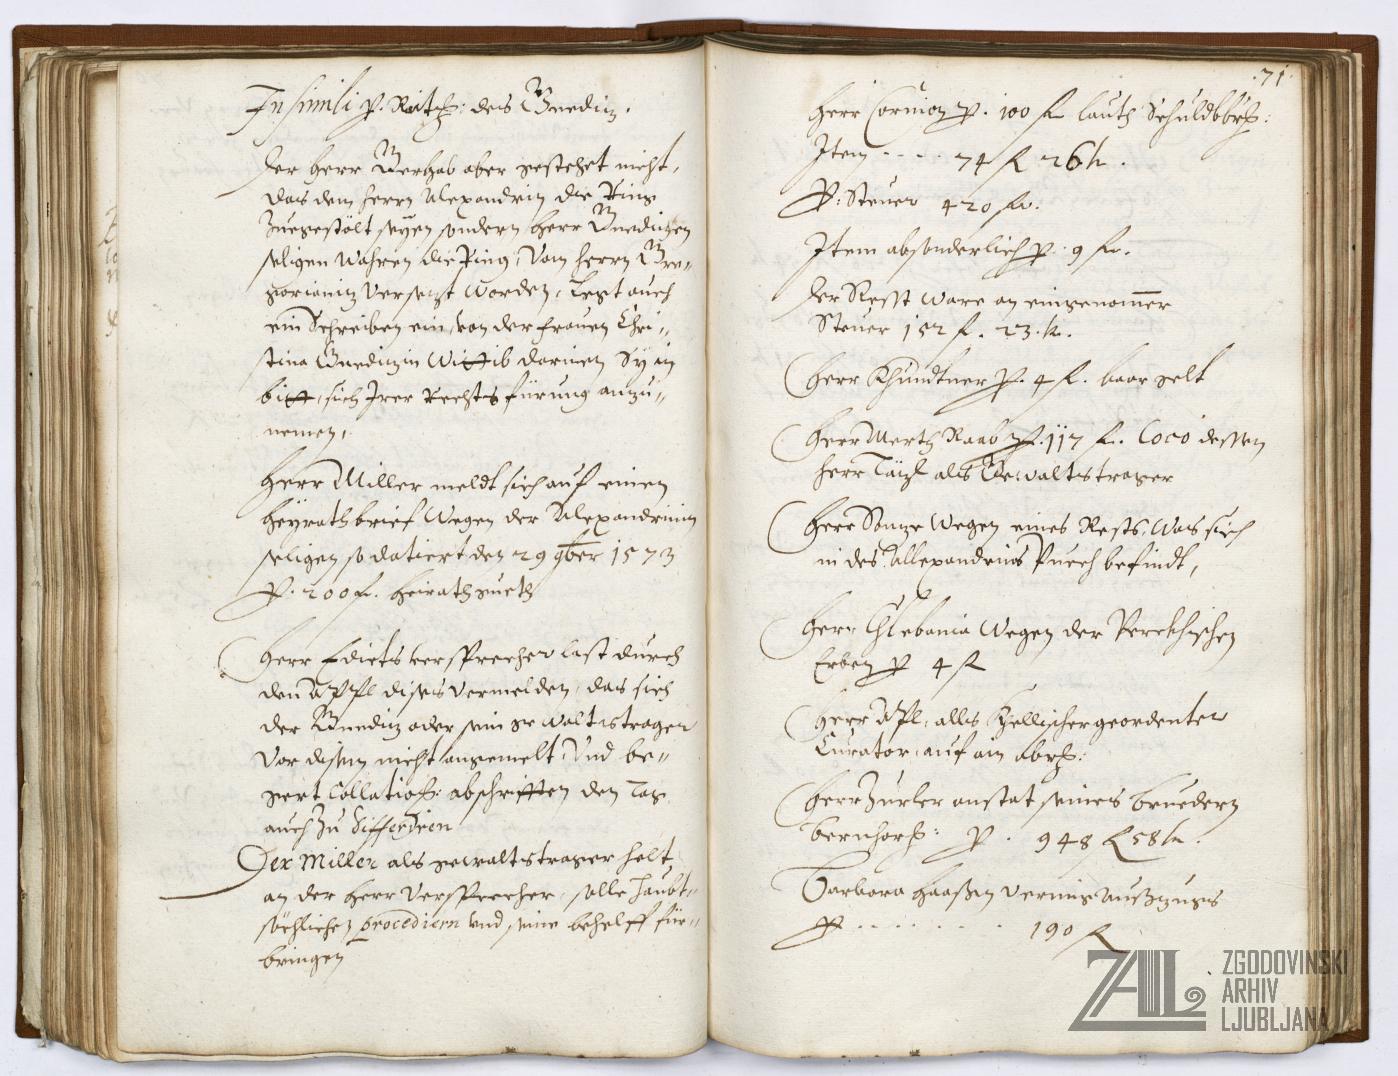 In simili p. Ratsch: des Gnediz.
Der Herr Verhab aber gestehet nicht,
das dem Herrn Alexandrin die Ring
Zuegestölt seyen sondern Herr Gnedizen
seligen wahren die Ring, Vom Herrn Gre-
gorianiz Versezt worden, Legt auch
ein Schreiben ein, von der Frauen Chri-
stina Gnedizin Wittib darinen Sy in
bitt, sich Irer Rechtsfürung anzu-
nemen,
Herr Miller meldt sich auf einen
Heyrathbrief wegen der Alexandrinin
seligen so datiert den 29 9ber 1573
p. 200 fl. Heirathguett
Herr Edictsversprecher last durch
den Appl dises Vermelden, das sich
der Gnediz oder sein gewaltstrager
vor disem nicht angemelt, Und be-
gert Collation: abschrifften den Tag
auch zu differiren
Der Miller als gewaltstrager helt
an der Herr Versprecher, solle haubt-
sächlichen procediern und seine behelff für-
bringen
71.
Herr Cormion p. 100 fl lauth Schuldbbrf:
Item - - - 74 fl 26 k.
P: Steuer 420 fl.
Item absonderlich p. 9 fl.
Der Resst ware an eingenommer
Steuer 152 f. 23. k.
Herr Khundtner p. 4 f. baar gelt
Herr Merth Raab p. 117 fl. loco dessen
Herr Täzl als Gewaltstrager
Herr Sonze wegen eines Rests, Was sich
in des Allexandrins Puech befindt,
Herr Chlebania wegen der Perckhischen
Erben p 4 fl
Herr Apl, alls Khellischer geordenter
Curator, auf ain abrß:
Herr Zurler anstat seines bruedern
bernhardt: p. 948 fl 58 k.
Barbara Haaßin vermüg Außzugs
p. . . . . . . . 190 fl
ZAL
ZGODOVINSKI
ARHIV
LJUBLJANA